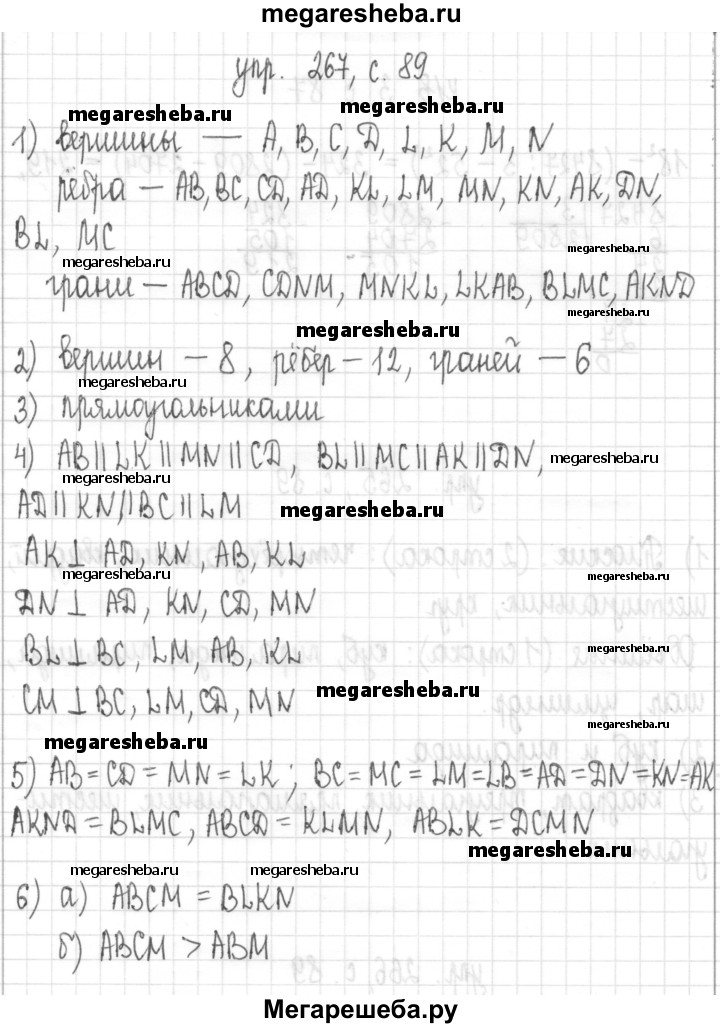 megaresheba.ru
упр. 267, с. 89
megaresheba.ru megaresheba.ru
1) вершины — A, B, C, D, L, K, M, N
рёбра — AB, BC, CD, AD, KL, LM, MN, KN, AK, DN,
BL, MC
megaresheba.ru megaresheba.ru
грани — ABCD, CDNM, MNKL, LKAB, BLMC, AKND
megaresheba.ru megaresheba.ru
2) вершин — 8, рёбер — 12, граней — 6
megaresheba.ru
3) прямоугольниками
4) AB || LK || MN || CD, BL || MC || AK || DN,
megaresheba.ru
AD || KN || BC || LM
megaresheba.ru
AK ⊥ AD, KN, AB, KL
megaresheba.ru megaresheba.ru
DN ⊥ AD, KN, CD, MN
BL ⊥ BC, LM, AB, KL
megaresheba.ru
CM ⊥ BC, LM, CD, MN
megaresheba.ru
megaresheba.ru
megaresheba.ru
5) AB = CD = MN = LK; BC = MC = LM = LB = AD = DN = KN = AK
AKND = BLMC, ABCD = KLMN, ABLK = DCMN
megaresheba.ru
megaresheba.ru megaresheba.ru
6) а) ABCM = BLKN
б) ABCM > ABM
Мегарешеба.ру